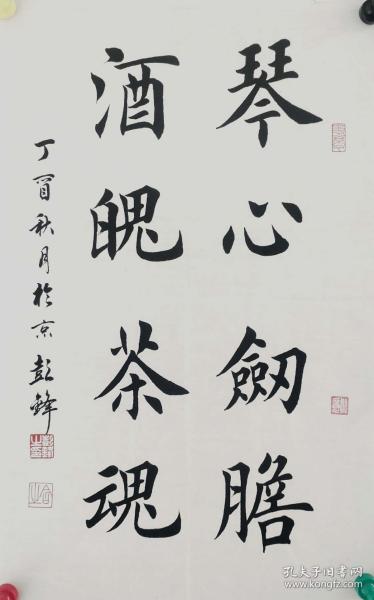 琴心劒膽
酒魄茶魂
丁酉秋月於京彭鋒
孔夫子旧书网
www.kongfz.com